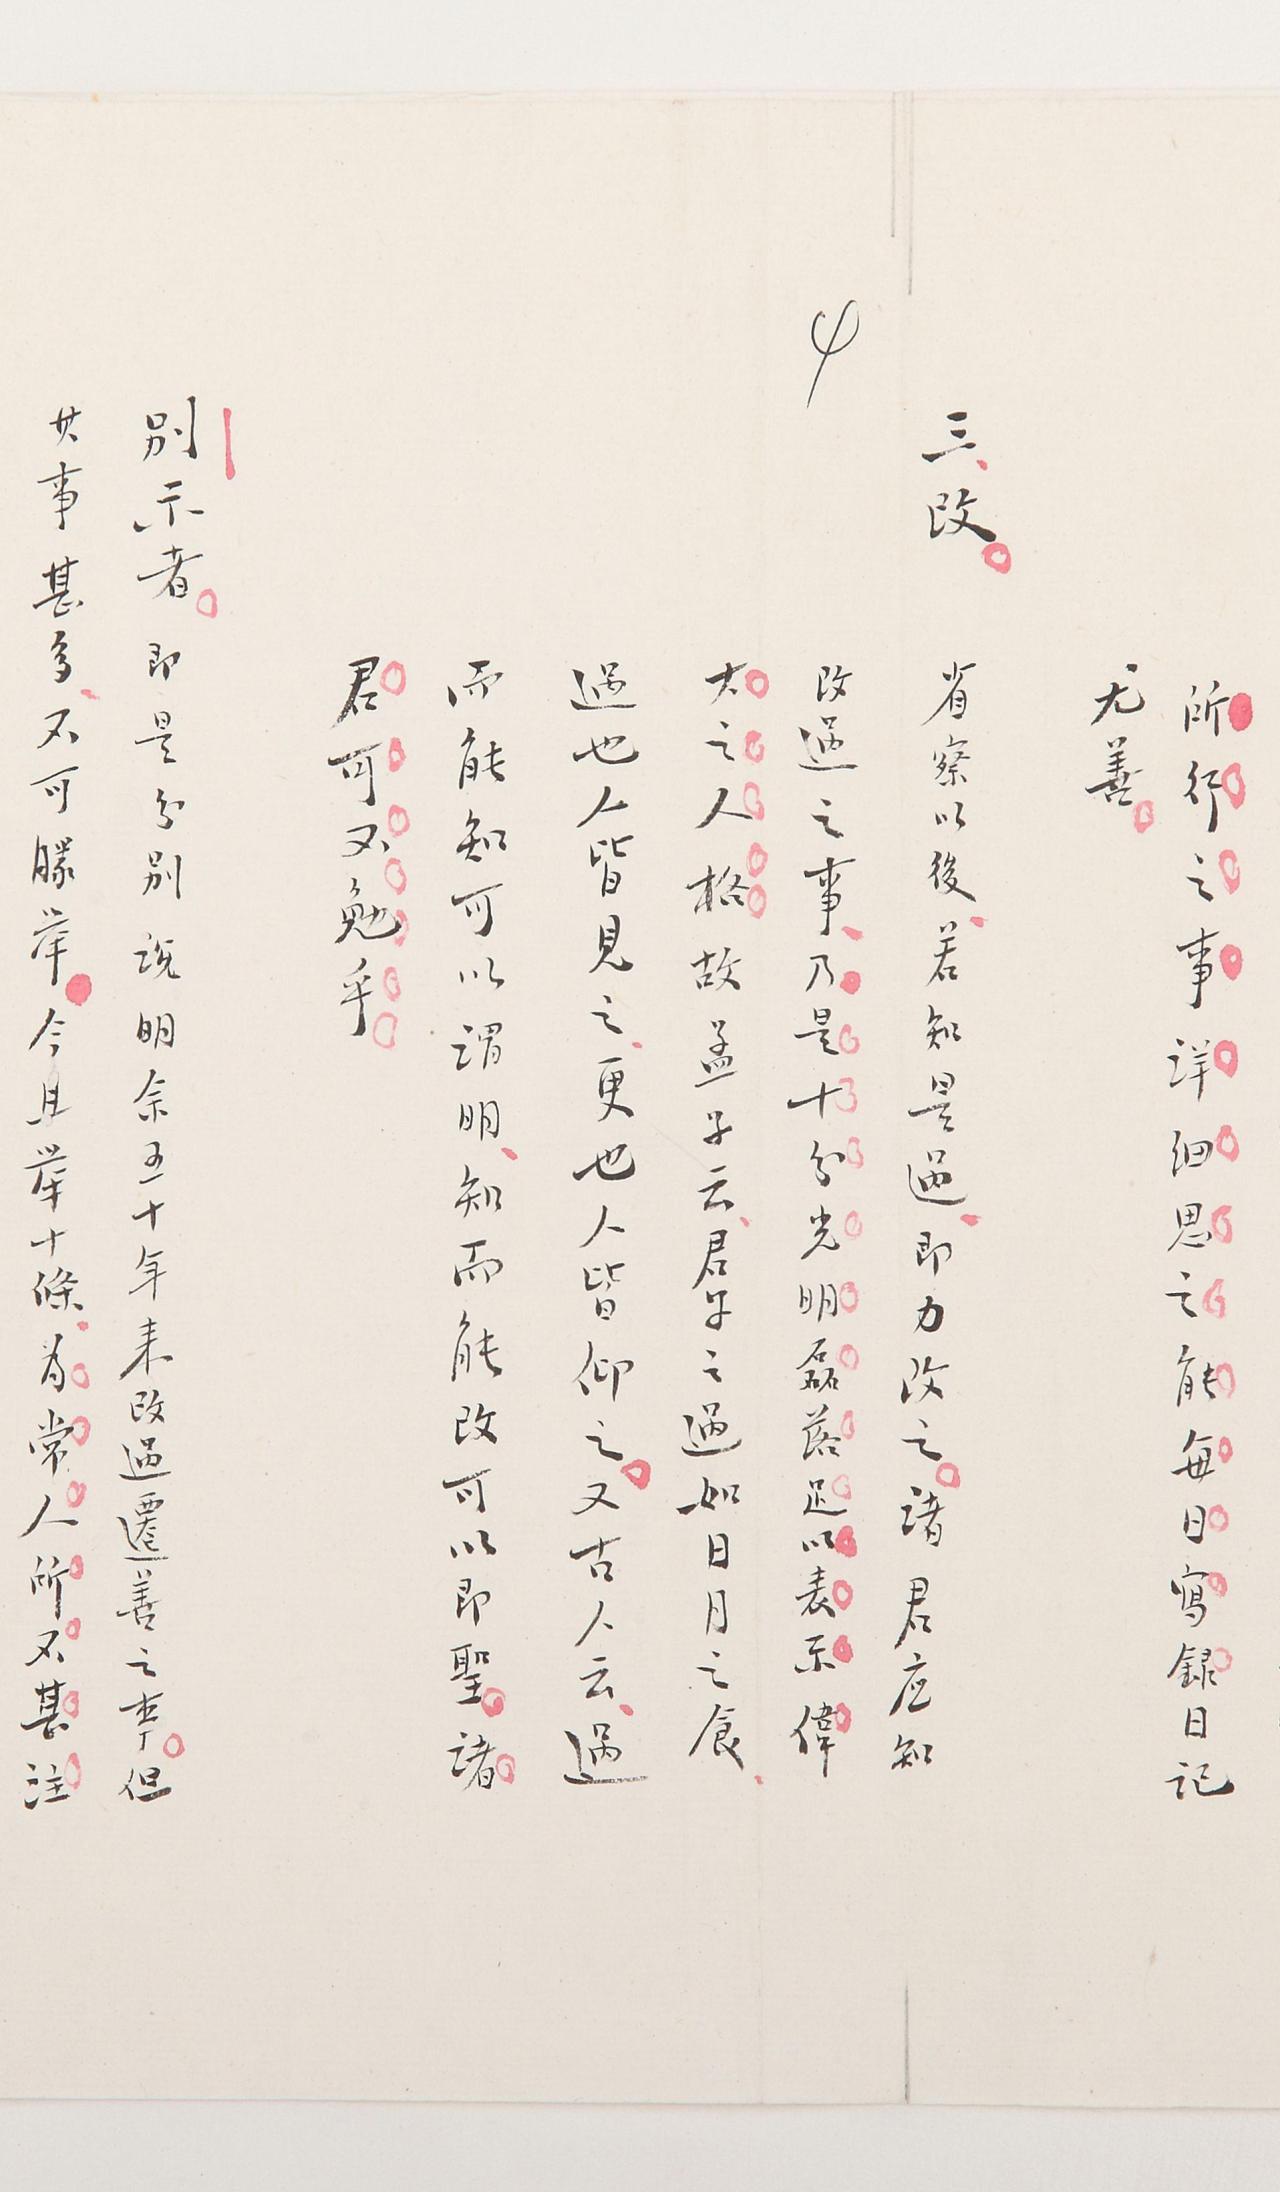 所行之事詳細思之能每日寫錄日記
尤善。
三、改。
省察以後、若知是過、即力改之。諸君应知
改過之事、乃是十分光明磊落足以表示偉
大之人格故孟子云、君子之過如日月之食、
過也人皆見之、更也人皆仰之。又古人云、過
而能知可以謂明、知而能改可以即聖。諸
君可不勉乎
別示者。即是分別說明余五十年来改過遷善之事。但
其事甚多、不可勝举。今且举十條、為常人所不甚注